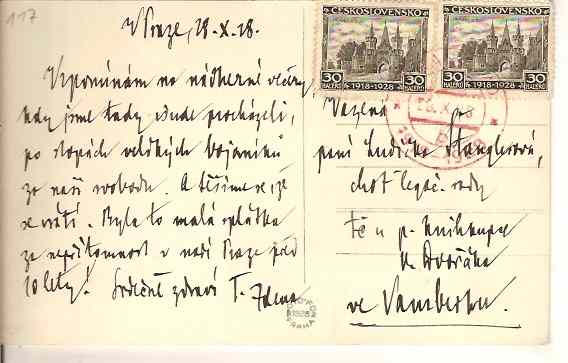 117
V Praze, 28.X.28.
Vzpomínám na nádherné večery
kdy jsme tady všude procházeli,
po stopách velkých bojovníků
za naši svobodu. A těšíme se, že
se vrátí. Byla to malá splátka
za nepřítomnost v naší Praze před
10 lety! Srdečně zdraví T. Zdena
ČESKOSLOVENSKO
30 1918-1928 30
HALÉŘŮ HALÉŘŮ
ČESKOSLOVENSKO
30 1918-1928 30
HALÉŘŮ HALÉŘŮ
Vážená
paní Ludiška Stanglerová,
choť legač. rady
t. č. u p. knihkupce
K. Dvořáka
ve Vamberku.
1928
PRAHA